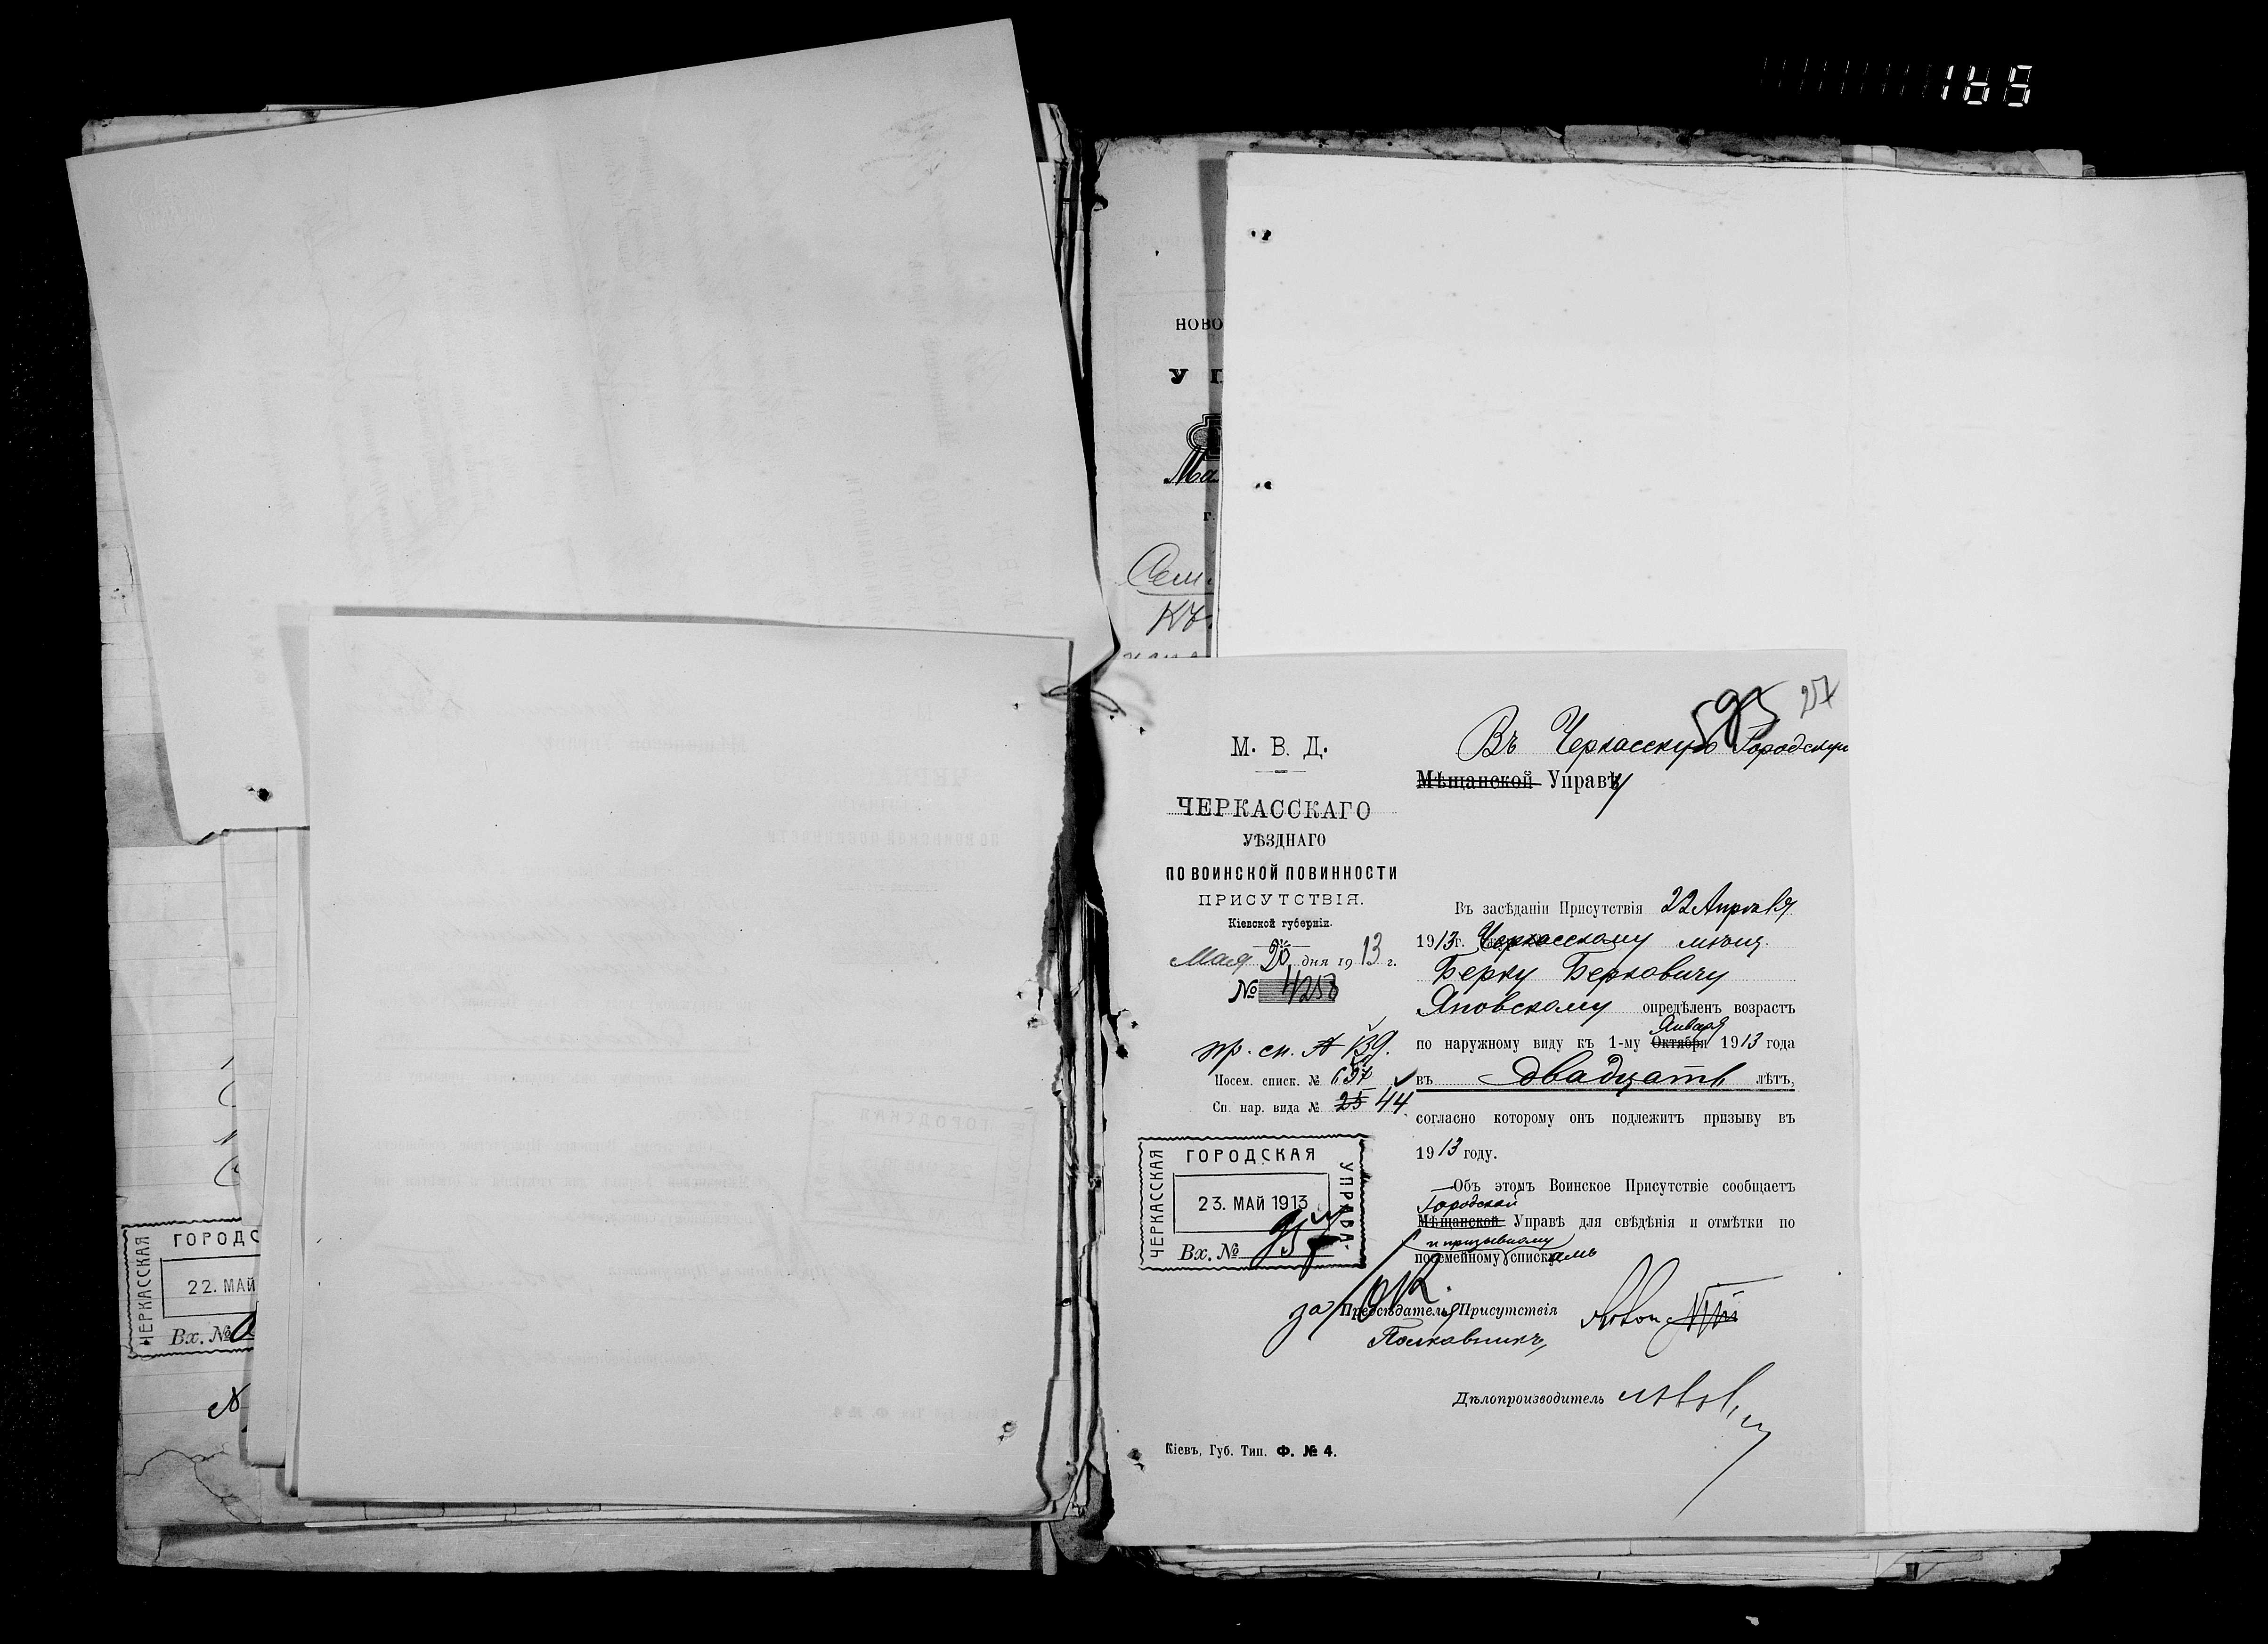 165
ГОРОДС
ЧЕРКАССКАЯ
22. МАЙ
Вх. №
НОВО
У П
Ма
г.
Сем.
КЪ
595 257
Въ Черкасскую Городскую
Мѣщанской Управѣу
М. В. Д.
ЧЕРКАССКАГО
УѢЗДНАГО
ПО ВОИНСКОЙ ПОВИННОСТИ
ПРИСУТСТВІЯ.
Кіевской губерніи.
Мая 20 дня 1913 г.
№ 4258
пр. сп. А 139.
Посем. списк. № 697
Сп. нар. вида № 25 44
ЧЕРКАССКАЯ
ГОРОДСКАЯ
УПРАВА.
23. МАЙ 1913
Вх. №
Въ засѣданіи Присутствія 22 Апрѣля
1913г. Черкасскому мѣщ.
Берку Берковичу
Яновскому опредѣленъ возрастъ
Января
по наружному виду къ 1-му Октября 1913 года
въ двадцать лѣтъ,
согласно которому онъ подлежитъ призыву въ
1913 году.
Объ этомъ Воинское Присутствіе сообщаетъ
Городской
Мѣщанской Управѣ для свѣдѣнія и отмѣтки по
и призывному
посемейному спискамъ
за Предсѣдателя Присутствія
Полковникъ
Дѣлопроизводитель
Кіевъ, Губ. Тип. Ф. № 4.